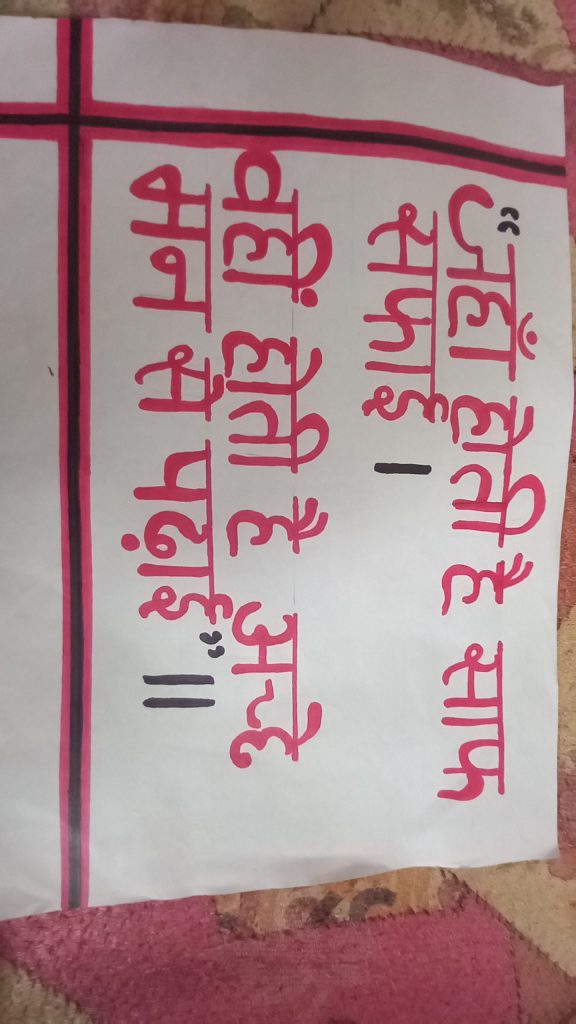 "जहाँ होती है साफ
सफाई ।
वहीं होती है अच्छे
मन से पढ़ाई" ॥